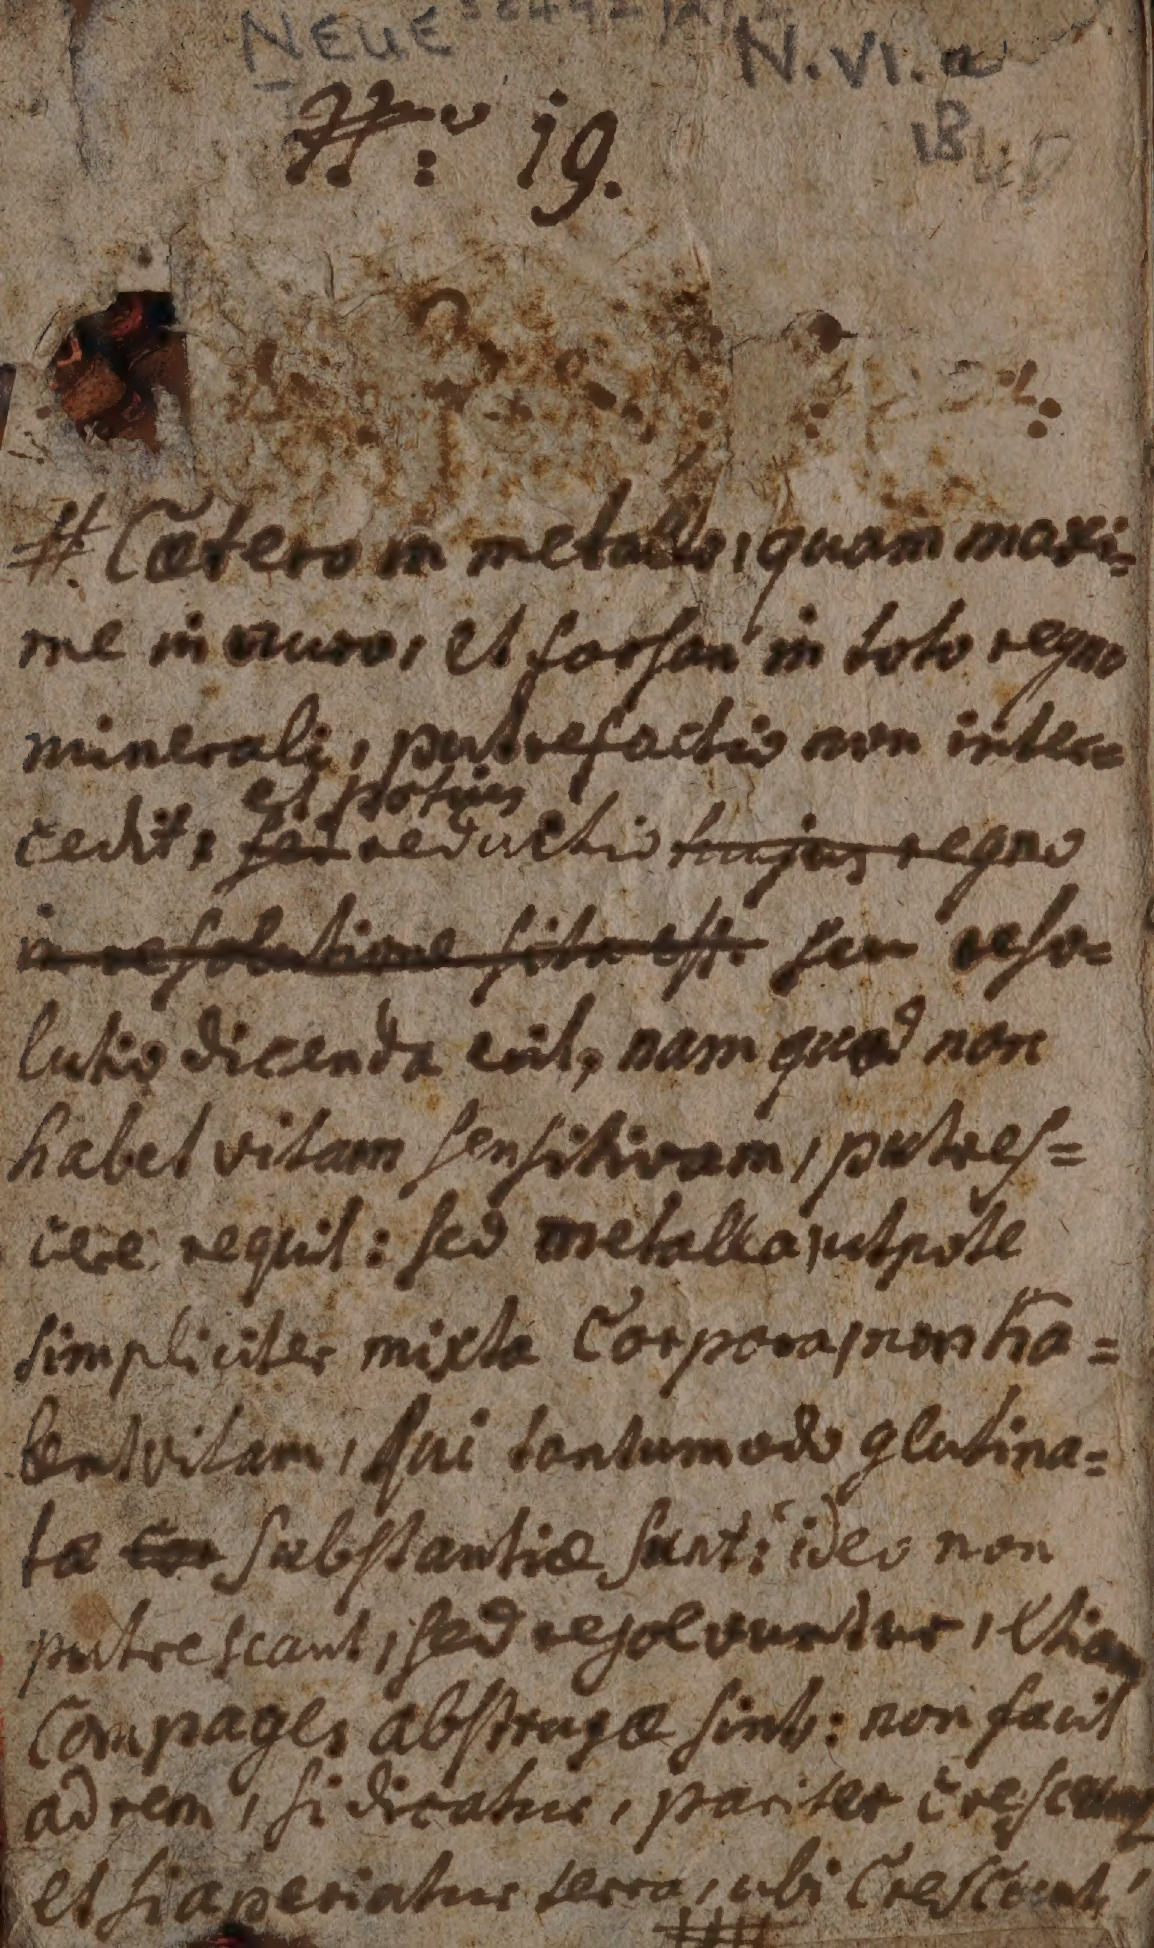 NEUE
N. VI. a
18
N.º 19.
#. Cætero in metallo, quam maxi=
me in auro, et forsan in toto regno
minerali, putrefactio non inter=
et potius
cedit: sed reductio hujus regno
in resolutione sita est. seu reso=
lutio dicenda erit, nam quod non
habet vitam sensitivam, putres=
cere nequit: sed metalla, utpote
simpliciter mixta Corpora, non ha=
bent vitam, qui tantumodo glutina=
tæ Cor substantiæ sunt: ideo non
putrescant, sed resolvuntur, etiam
Compages abstrusæ sint: non facit
ad rem, si dicatur, pariter crescunt
et si aperiatur terra, ubi Crescunt